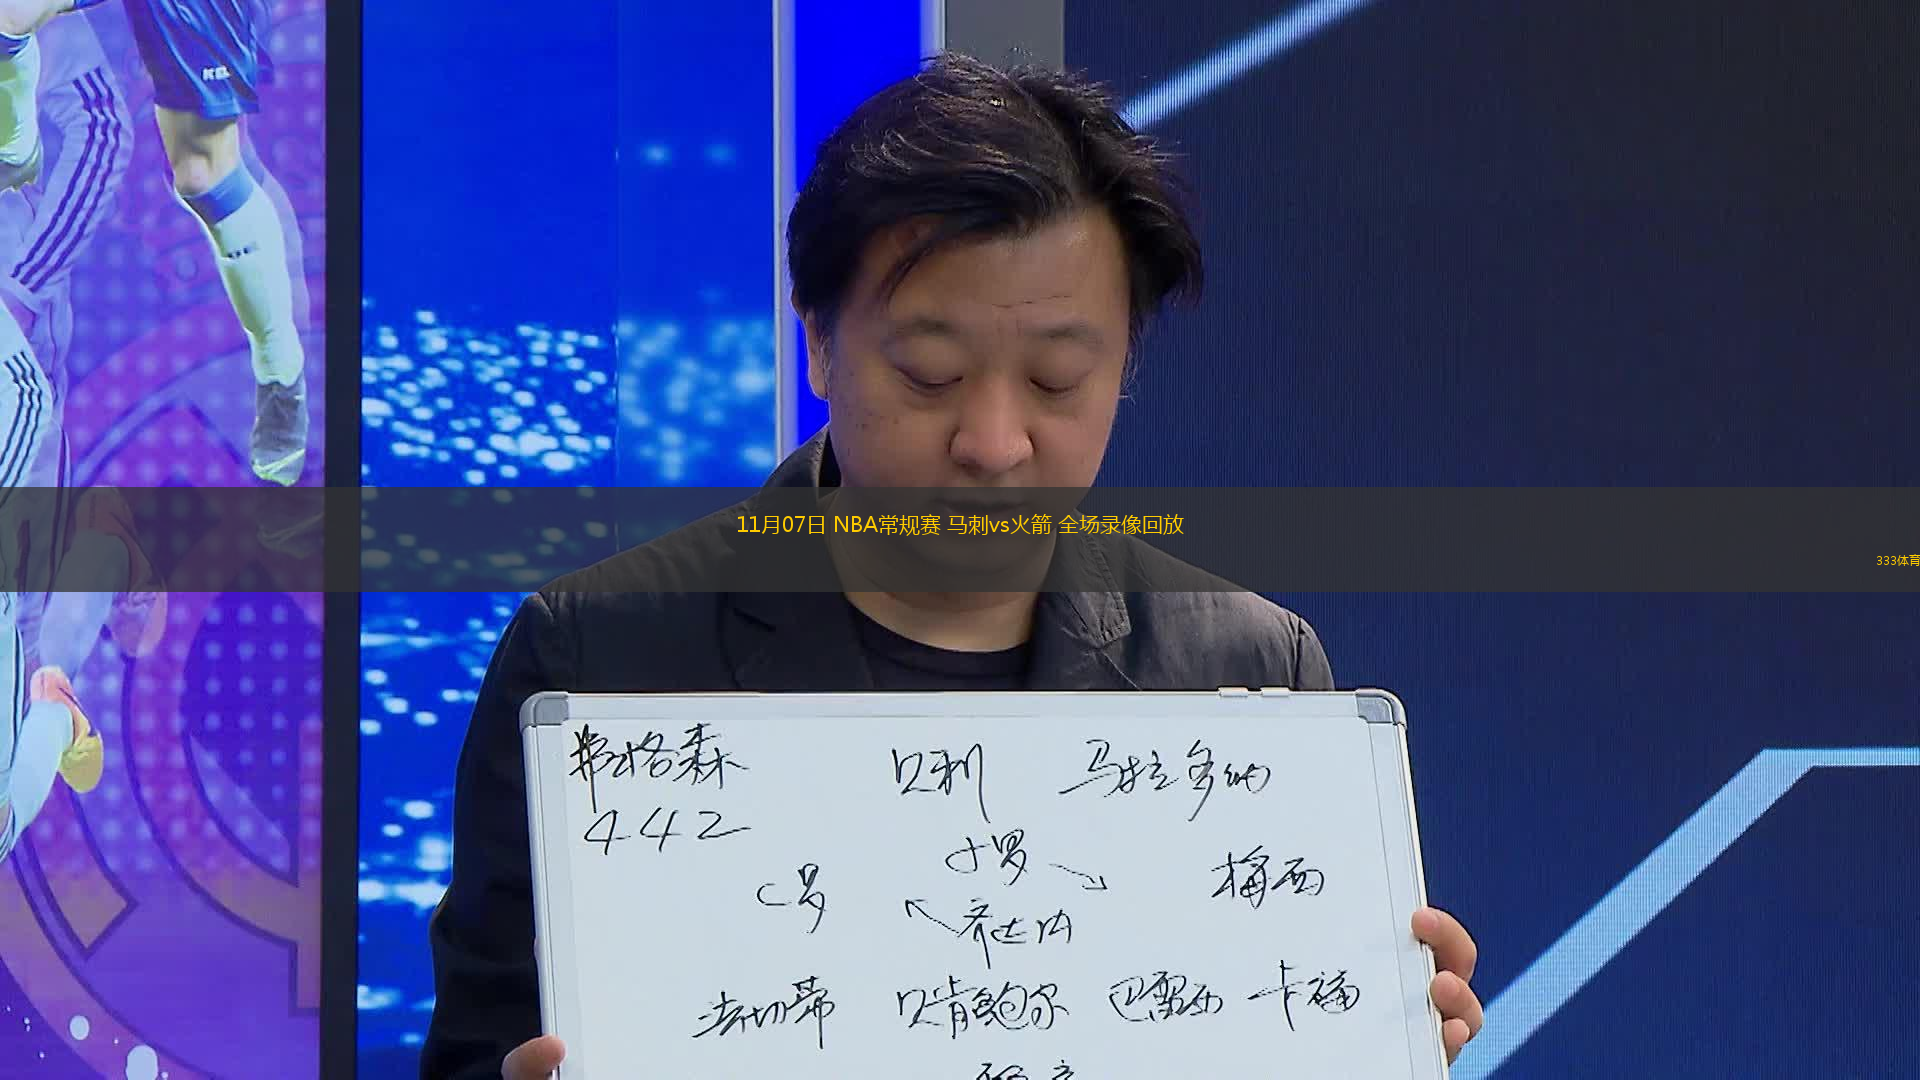 11月07日 NBA常规赛 马刺vs火箭 全场录像回放
333体育
弗格森 贝利 马拉多纳
442
小罗
C罗 梅西
齐达内
法切蒂 贝肯鲍尔 巴雷西 卡福